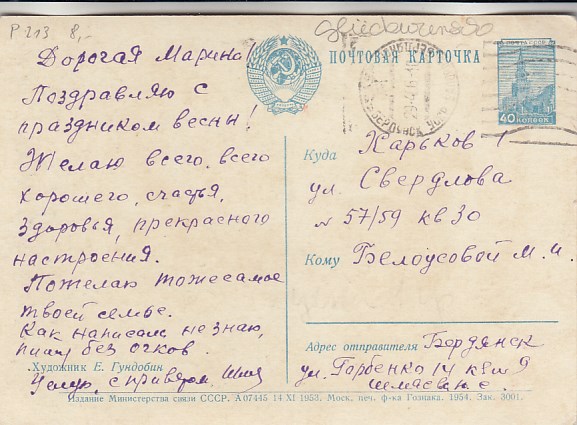 P 213 8,-
Дорогая Марина!
Поздравляю с
праздником весны!
Желаю всего, всего
хорошего, счастья,
здоровья, прекрасного
настроения.
Пожелаю тоже самое
твоей семье.
Как написала не знаю,
пишу без очков.
Художник Е. Гундобин
Целую, с приветом
ПОЧТОВАЯ КАРТОЧКА
ПОЧТА СССР
40 КОПЕЕК
Куда
Харьков 1
ул. Свердлова
№ 57/59 кв 30
Кому Белоусовой М. И.
Адрес отправителя Бердянск
ул. Горбенко 14 кв 9
Издание Министерства связи СССР. А 07445 14 XI 1953. Моск. печ. ф-ка Гознака. 1954. Зак. 3001.